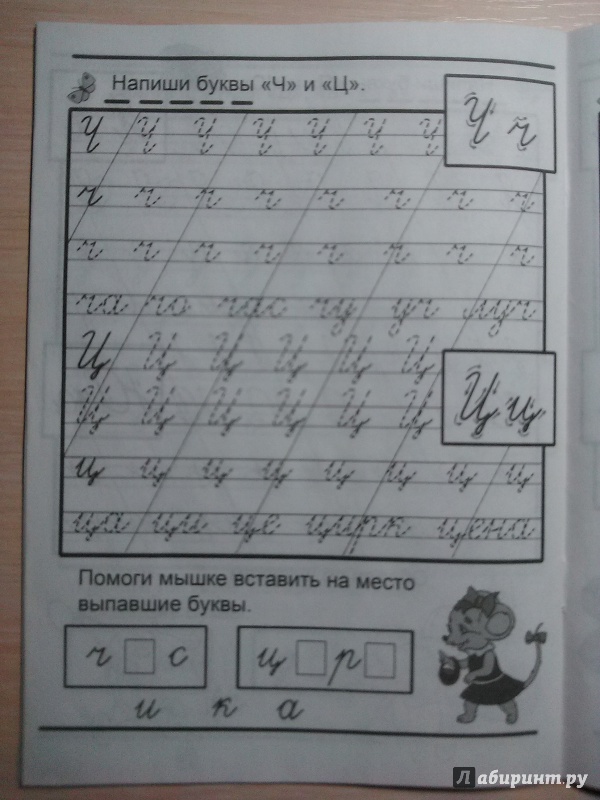 Напиши буквы «Ч» и «Ц».
Ч Ч Ч Ч Ч Ч Ч
Ч ч
ч ч ч ч ч ч ч ч
ч ч ч ч ч ч ч ч
ча чо час чу уч луч
Ц Ц Ц Ц Ц Ц
Ц Ц Ц Ц Ц Ц
Ц ц
ц ц ц ц ц ц ц ц
ца ци це цирк цена
Помоги мышке вставить на место
выпавшие буквы.
ч с ц р
и к а
Лабиринт.ру